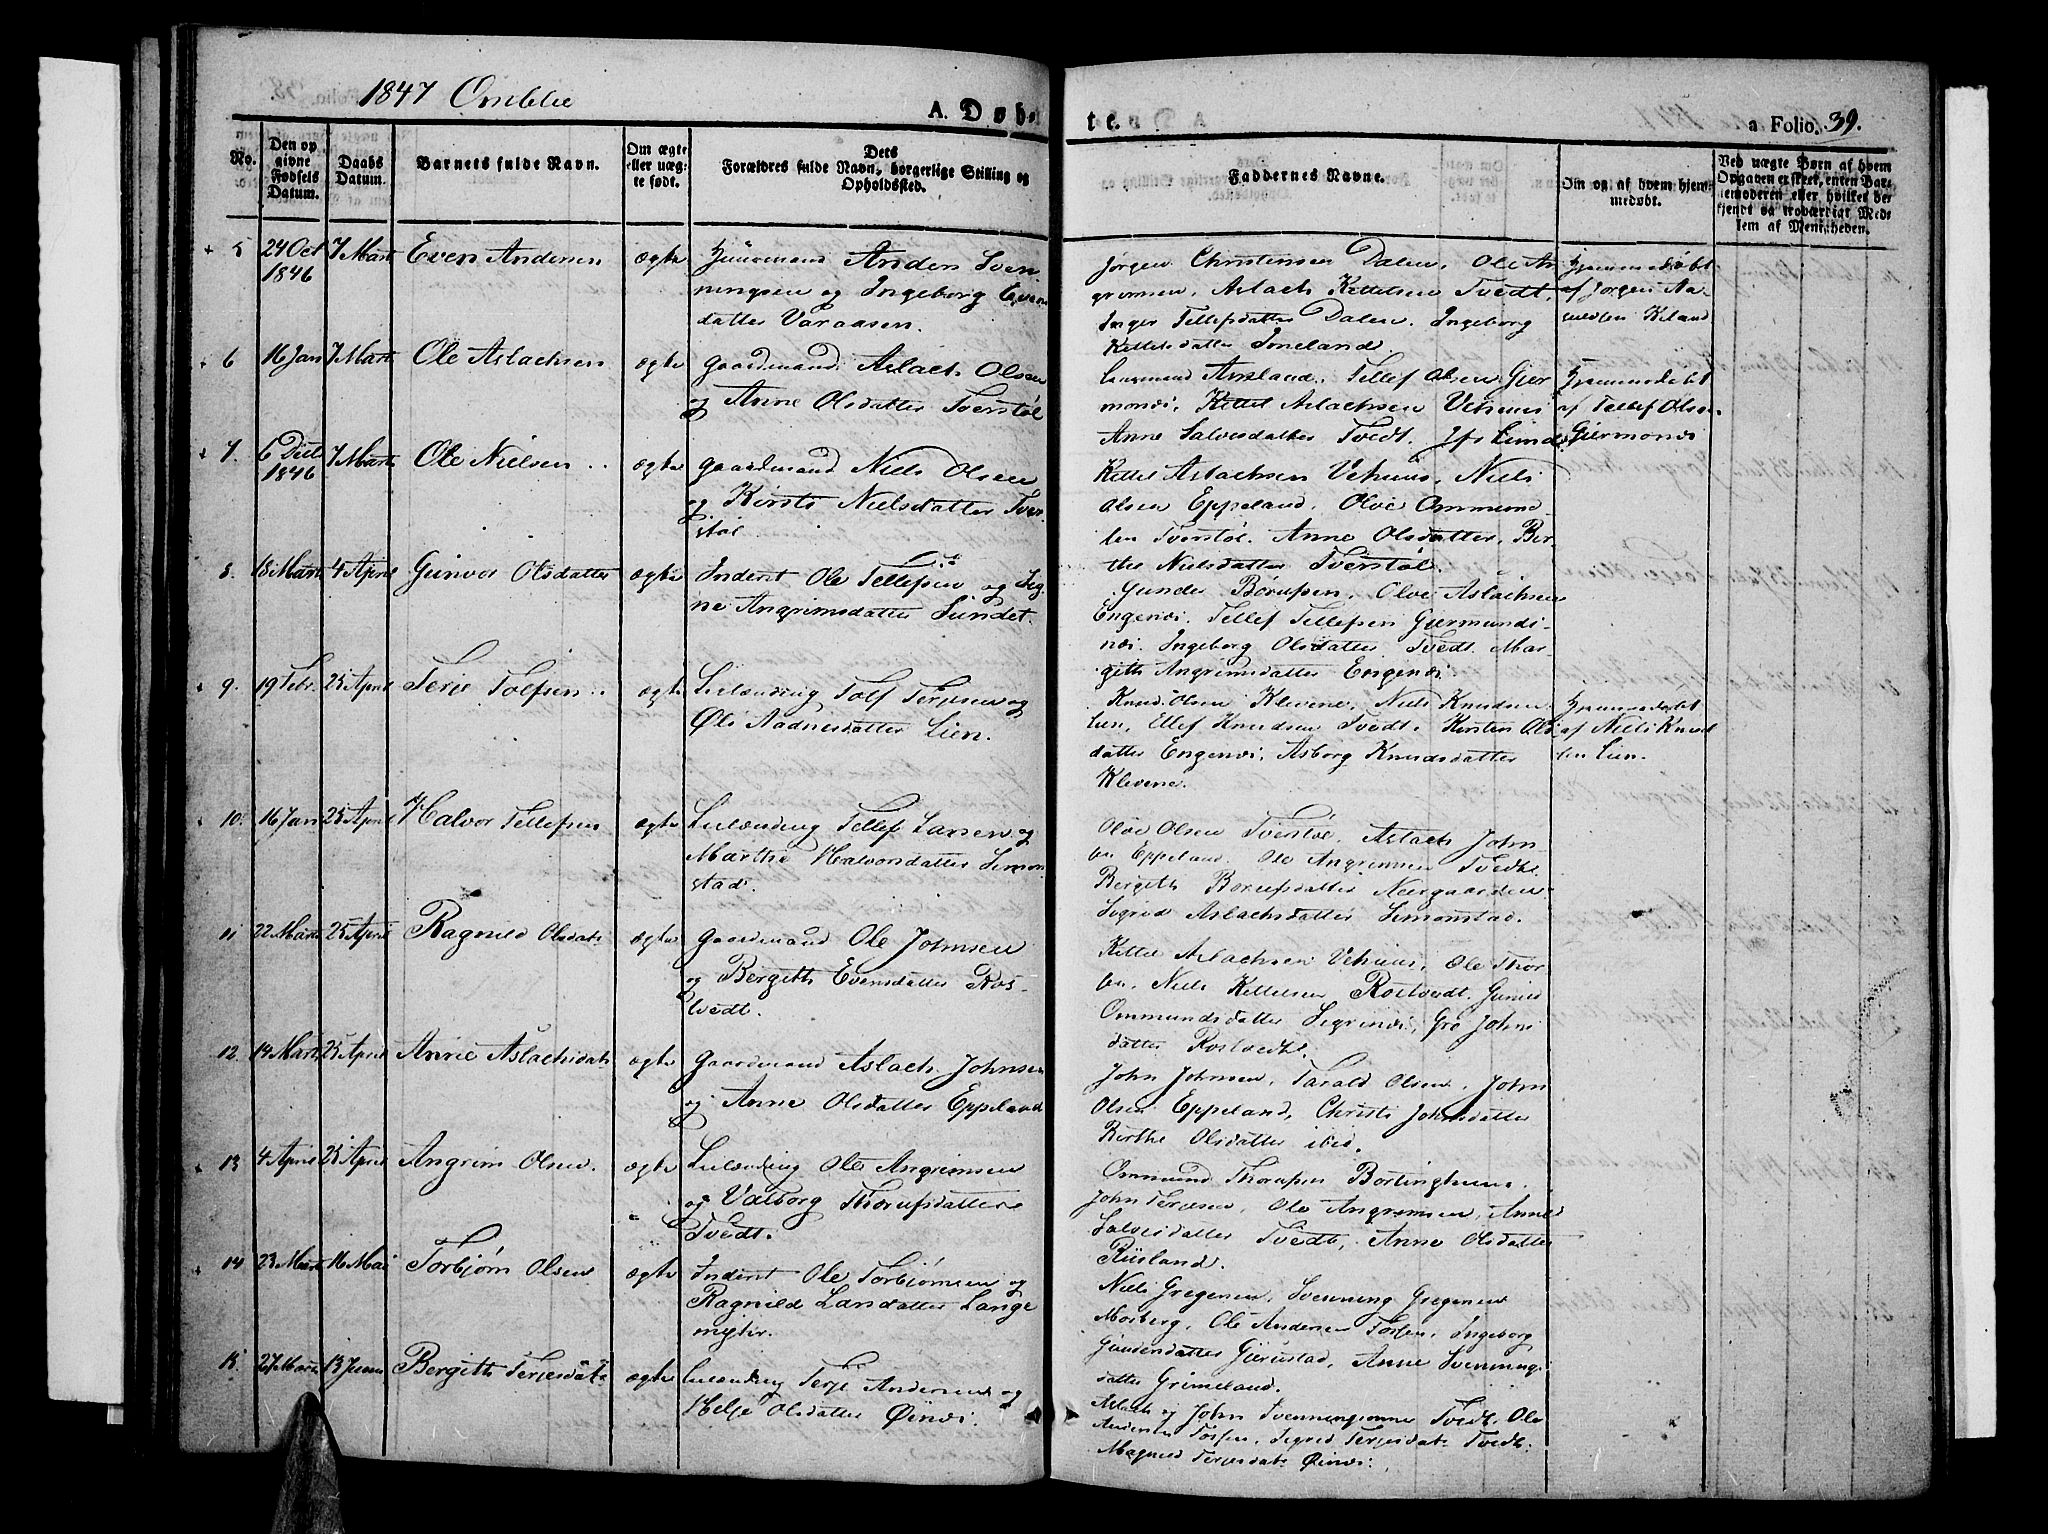 1847 Omblie
A. Døbte.
a Folio. 39.
No.
Den opgivne Fødsels Datum.
Daabs Datum.
Barnets fulde Navn.
Om ægte eller uægte født.
Dets Forældres fulde Navn, borgerlige Stilling og Opholdssted.
Faddernes Navne.
Om og af hvem hjemmedøbt.
Ved uægte Børn af hvem Opgaven er skeet, enten Barnemoderen eller hvilket bekjendt og troværdigt Medlem af Menigheden.
5 24 Oct 1846 7 Marts Even Andersen ægte Huusmand Anders Sven
ningsen og Ingeborg Evens
datter Varaasen.
Jørgen Christensen Dalen, Ole An
grimsen, Aslach Kettelsen Tvedt,
Inger Tellefsdatter Dalen. Ingeborg
Kettelsdatter Joneland.
Hjemmedøbt
af Jørgen Aa
nedsen Keland
6 16 Jan 7 Marts Ole Aslachsen ægte Gaardmand Aslach Olsen
og Anne Olsdatter Tverstøl
Lensmand Amland. Tellef Olsen Gjer
monnæs, Kettel Aslachsen Vehuus
Anne Salvesdatter Tvedt.
Hjemmedøbt
af Tellef Olsen
Gjermonnæs
7. 6 Dec 1846 7 Marts Ole Nielsen ægte Gaardmand Niels Olsen
og Kirste Nielsdatter Tver
støl
Kettel Aslachsen Vehuus, Niels
Olsen Eppeland, Olve Ommund
sen Tverstøl. Anne Olsdatter, Ber
the Nielsdatter Tverstøl.
8. 18 Marts 4 April Gunvor Olsdatter ægte Inderst Ole Tellefsen og Sig
ne Angrimsdatter Sundet.
Gunder Børufsen, Olve Aslachsen
Engenæs. Tellef Tellefsen Gjermunds
næs. Ingeborg Olsdatter Tvedt. Mar
geth Angrimsdatter Engenæs
9. 19 Febr. 25 April Terje Tolfsen ægte Leilænding Tolf Terjesen og
Øli Aadnesdatter Lien.
Knud Olsen Klevene, Niels Knudsen
Lien, Ellef Knudsen Tvedt, Kirsten Ols
datter Engenæs, Asborg Knudsdatter
Klevene.
Hjemmedøbt
af Niels Knud
sen Lien.
10. 16 Jan 25 April Halvor Tellefsen ægte Leilænding Tellef Larsen og
Marthe Halvorsdatter Simon
stad.
Olve Olsen Tverstøl, Aslach John
sen Eppeland. Ole Angrimsen Tvedt
Bergith Borufsdatter Neergaarden
Sigrid Aslachsdatter Simonstad.
11 22 Marts 25 April Ragnild Olsdatr ægte Gaardmand Ole Johnsen
og Bergith Evensdatter Ros-
tvedt.
Kettel Aslachsen Vehuus, Ole Thor
sen, Niels Kettelsen Rostvedt. Gunild
Ommundsdatter Sigrinæs, Gro Johns
datter Rostvedt.
12. 14 Marts 25 April Anne Aslachsdatr ægte Gaardmand Aslach Johnsen
og Anne Olsdatter Eppeland
John Johnsen, Tarald Olsen, John
Olsen Eppeland, Christi Johnsdatter
Berthe Olsdatter ibid.
13 4 April 25 April Angrim Olsen. ægte Leilænding Ole Angrimsen
og Valborg Thorufsdatter
Tvedt.
Ommund Thorufsen Bortinghuus.
John Terjesen, Ole Angrimsen, Anne
Salvesdatter Tvedt, Anne Olsdatter
Riisland.
14 23 Marts 16 Mai Torbjørn Olsen ægte Inderst Ole Torbjørnsen og
Ragnild Larsdatter Lange
myhr.
Niels Gregersen, Svenning Gregersen
Mosberg, Ole Andersen Tosfen, Ingeborg
Gundersdatter Gjerustad, Anne Svennings
datter Grimeland.
15. 27 Marts 13 Juni Bergith Terjesdatr ægte Leilænding Terje Andersen og
Helje Olsdatter Øinæs.
Aslach og John Svenningsønner Tvedt, Ole
Andersen Tosfen, Sigrid Terjesdatr Tvedt.
Magnild Terjesdatr Øinæs.